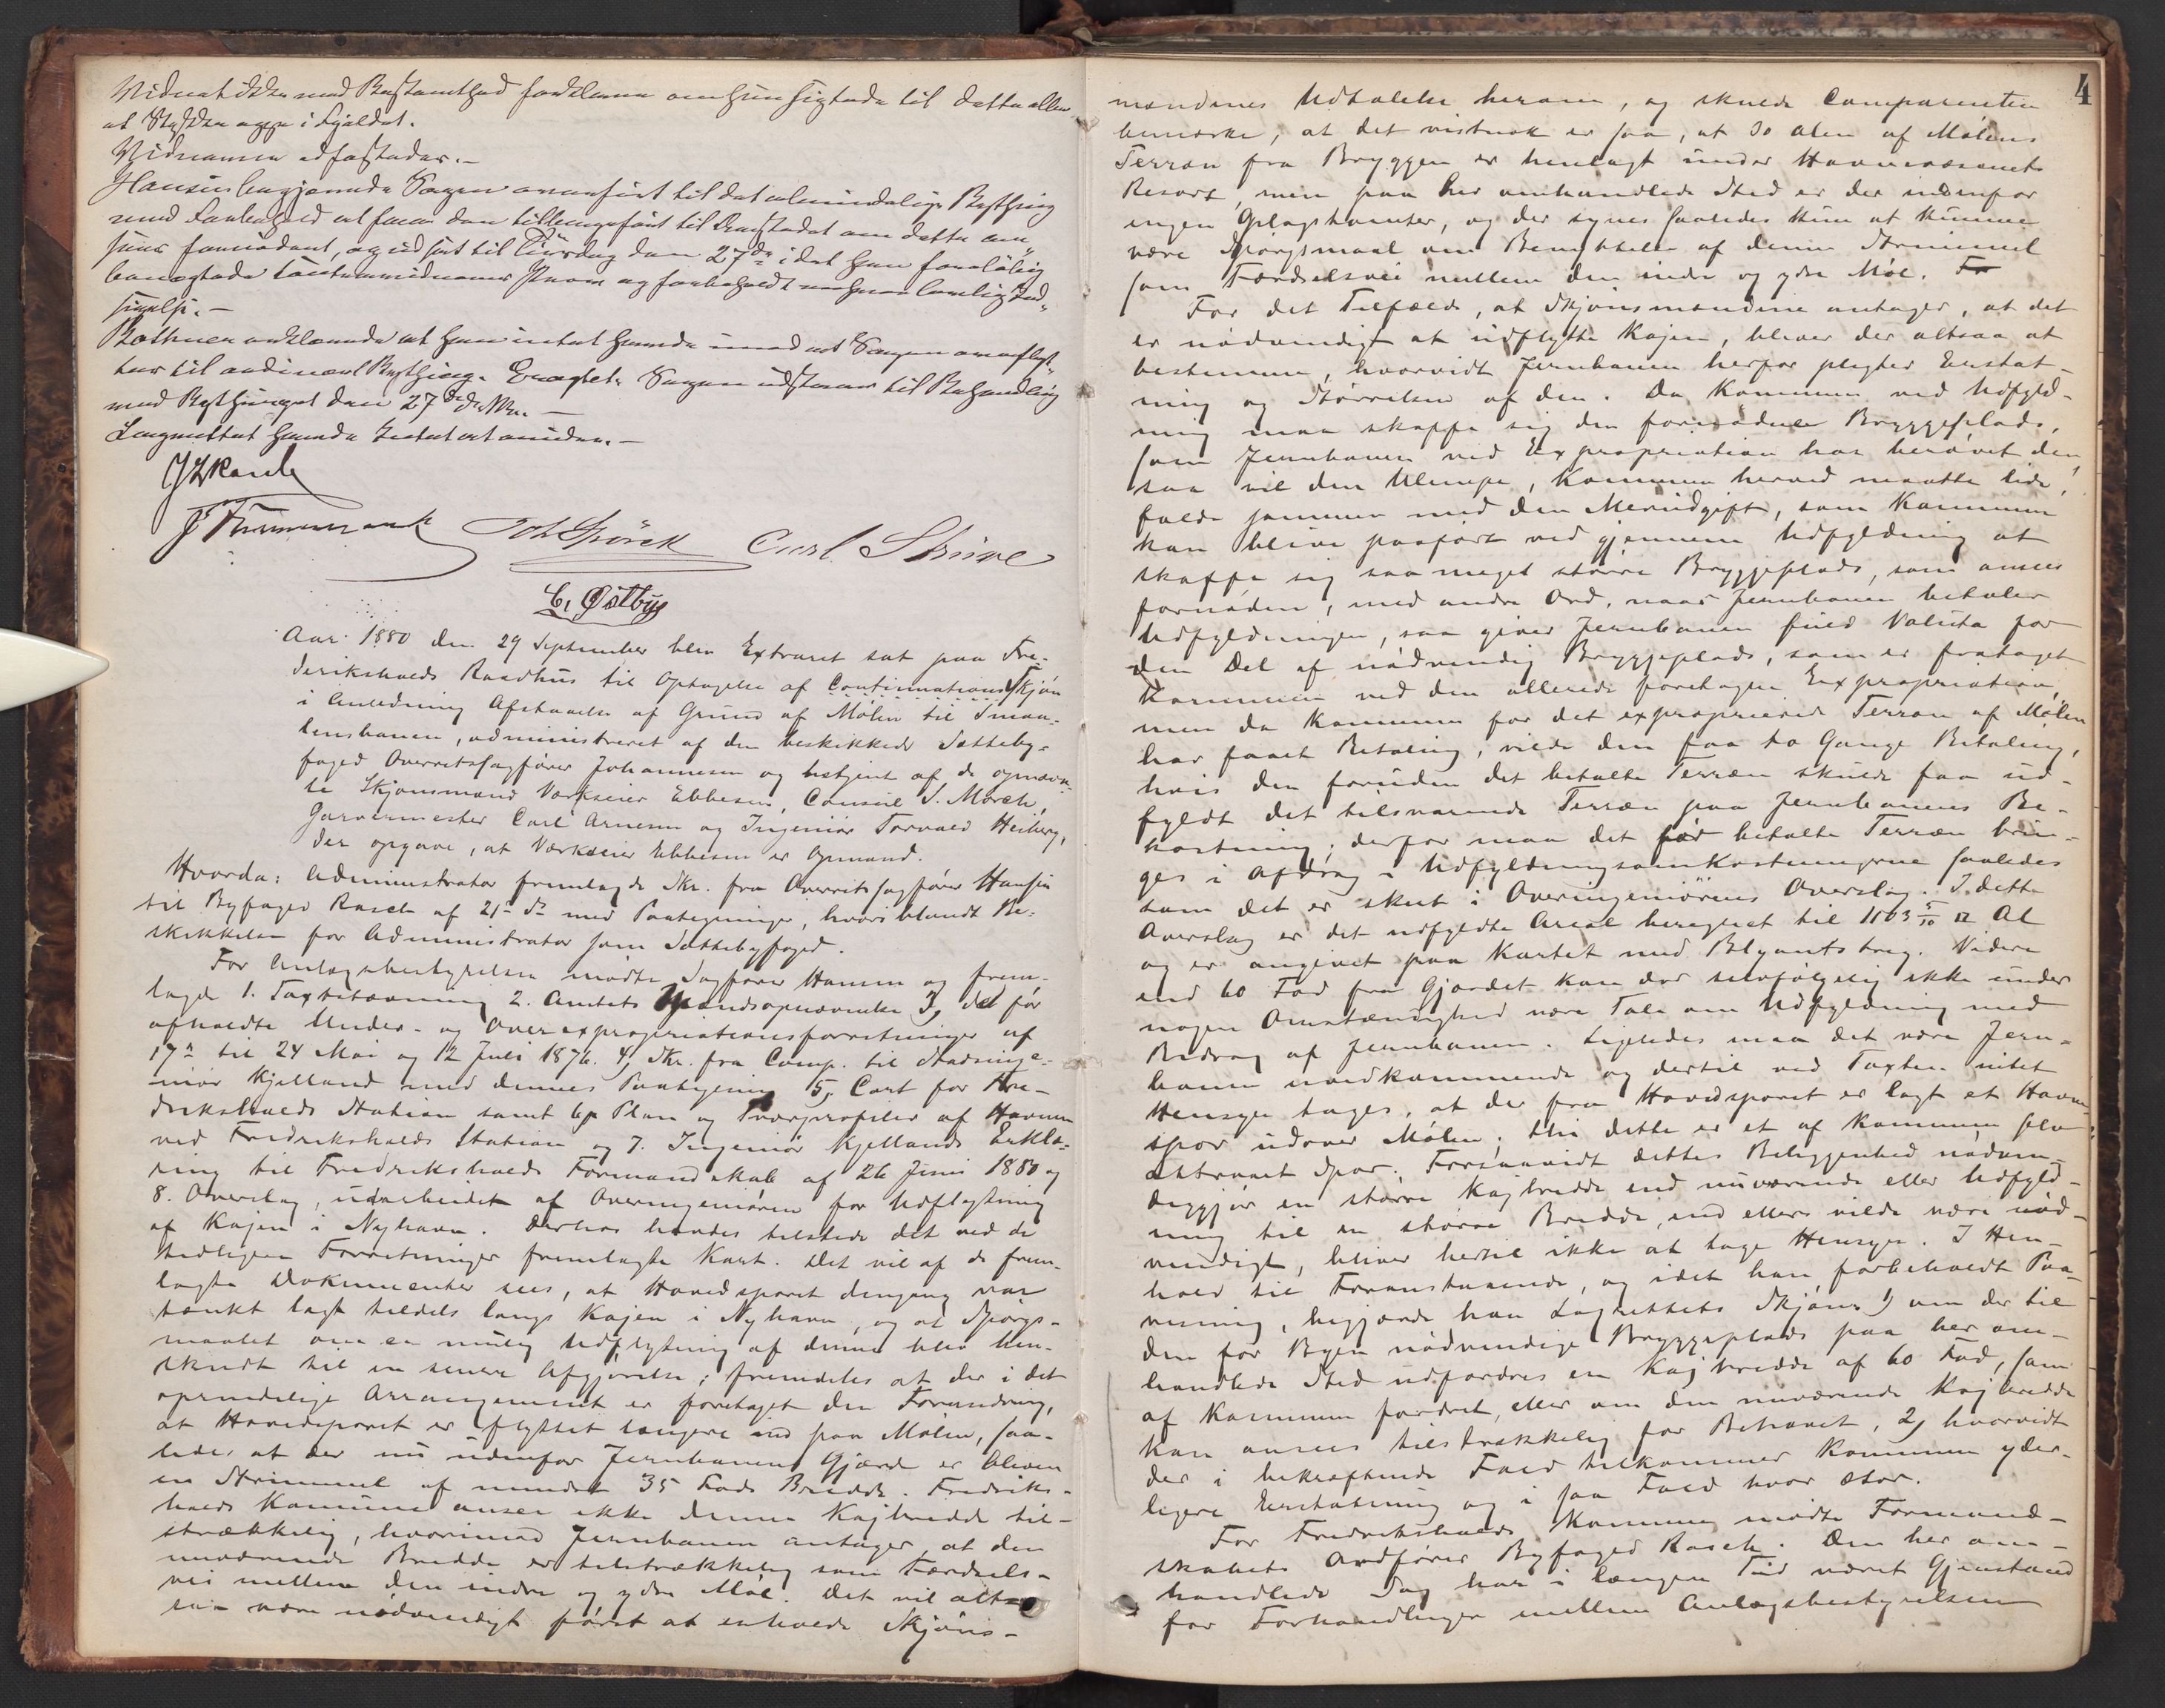 Vidnet ikke med Bestemthed forklare om hun sigtede til dette eller
at Stykke oppe i Fjeldet.
Vidnerne edfæstedes.-
Hansen begjærede Sagen overført til det almindelige Bything
med Forbehold at faa den tilbageført til Aastedet om dette an„
sees fornødent, og udsat til Tirsdag den 27de i det han foreløbig
benegtede Contravidnernes Prov og forbeholdt enhver lovlig Ind„
sigelse.-
Bothner erklærede at han intet havde imod at Sagen overflyt„
tes til ordinært Bything. Eragtet: Sagen udstaar til Behandling
med Bythinget den 27de ds. Mn. -
Laugrettet havde Intet at anide.-
Joh Spörck Carl Strive
C. Østbye
Aar 1880 den 29 September blev Extraret sat paa Fre-
derikshalds Raadhus til Optagelse af Continuationsskjøn
i Anledning Afstaaelse af Grund af Mølen til Smaa-
lensbanen, administreret af den beskikkede Sætteby-
foged Overretssagfører Johannesen og betjent af de opnævn-
te Skjønsmænd Værkseier Ebbesen, Consul S. Mørch,
Garvermester Carl Arnesen og Ingeniør Torvald Heiberg,
der opgave, at Værkseier Ebbesen er Opmand.
Hvorda: Administrator fremlagde Skr. fra Overretssagfører Hansen
til Byfoged Rasch af 21de ds med Paategninger, hvoriblandt Be-
skikkelse for Administrator som Sættebyfoged.
For Anlægsbestyrelsen mødte Sagfører Hansen og frem-
lagde 1. Taxtstævning 2. Amtets Mændsopnævnelse 3, det før
afholdte Under- og Overexpropriationsforretninger af
17de til 24 Mai og 12 Juli 1876. 4, Skr. fra Comp. til Stadsinge-
niør Kjelland med dennes Paategning 5, Cart for Fre-
drikshalds Station samt 6, Plan og Tværprofiler af Havnen
ved Fredrikshalds Station og 7. Ingeniør Kjellands Erklæ-
ring til Fredrikshalds Formandskab af 26 Juni 1880 og
8. Overslag, udarbeidet af Overingeniøren for Udflytning
af Kajen i Nyhavn. Derhos havdes tilstede det ved de
tidligere Forretninger fremlagte Kart. Det vil af de frem-
lagte Dokumenter sees, at Hovedsporet dengang var
tænkt lagt tildels langs Kajen i Nyhavn, og at Spørgs-
maalet om en mulig Udflytning af denne blev hen-
skudt til en senere Afgjørelse; fremdeles at der i det
oprindelige Arrangement er foretaget den Forandring,
at Hovedsporet er flyttet længere ind paa Mølen, saa-
ledes at der nu udenfor Jernbanens Gjærde er bleven
en Strimmel af mindst 35 Fods Bredde. Fredriks-
halds Kommune anser ikke denne Kajbredde til-
strækkelig, hvorimod Jernbanen antager, at den
nuværende Bredde er tilstrækkelig som Færdsels-
vei mellem den indre og ydre Møle. Det vil alt-
saa være nødvendigt først at erholde Skjøns-
4
mændenes Udtalelse herom, og skulde Comparenten
bemærke, at det vistnok er saa, at 30 Alen af Mølens
Terræn fra Bryggen er henlagt under Havnevæsenets
Resort, men paa her omhandlede Sted er der indenfor
ingen Oplagstomter, og der synes saaledes kun at kunne
være Spørgsmaal om Benyttelse af denne Strimmel
som Færdselsvei mellem den indre og ydre Møle. Fo
For det Tilfælde, at Skjønsmændene antager, at det
er nødvendigt at udflytte Kajen, bliver der altsaa at
bestemme, hvorvidt Jernbanen herfor pligter Erstat-
ning og Størrelsen af den. Da Kommunen ved Udfyld-
ning maa skaffe sig den fornødne Bryggeplads,
som Jernbanen ved Expropriation har berøvet den,
saa vil den Ulempe, Kommunen herved maatte lide,
falde sammen med den Merudgift, som Kommunen
kan blive paaført ved gjennem Udfyldning at
skaffe sig saa meget større Bryggeplads, som ansees
fornøden, med andre Ord, naar Jernbanen betaler
Udfyldningen, saa giver Jernbanen fuld Valuta for
den Del af nødvendig Bryggeplads, som er frataget
Kommunen ved den allerede foretagne Expropriation,
men da Kommunen for det exproprierede Terræn af Mølen
har faaet Betaling, vilde den faa to Gange Betaling,
hvis den foruden det betalte Terræn skulde faa ud-
fyldt det tilsvarende Terræn paa Jernbanens Be-
kostning; derfor maa det før betalte Terræn brin-
ges i Afdrag i Udfyldningsomkostningerne saaledes
som det er skeet i Overingeniørens Overslag. I dette
Overslag er det udfyldte Areal beregnet til 1103 5/10 □ Al
og er angivet paa Kartet med Blyantstreg. Videre
end 60 Fod fra Gjærdet kan der selvfølgelig ikke under
nogen Omstændighed være Tale om Udfyldning med
Bidrag af Jernbanen. Ligeledes maa det være Jern-
banen uvedkommende og dertil ved Taxten intet
Hensyn tages, at der fra Hovedsporet er lagt et Havne-
spor udover Mølen; thi dette er et af Kommunen selv
attraaet Spor. Forsaavidt dettes Beliggenhed nødven-
diggjør en større Kajbredde end nuværende eller Udfyld-
ning til en større Bredde, end ellers vilde være nød-
vendigt, bliver hertil ikke at tage Hensyn. I Hen-
hold til Foranstaaende, og idet han forbeholdt Paa-
visning, begjærede han Lagrettets Skjøn: 1) om der til
den for Byen nødvendige Bryggeplads paa her om-
handlede Sted udfordres en Kajbredde af 60 Fod, som
af Kommunen fordret, eller om den nuværende Kajbredde
kan ansees tilstrækkelig for Behovet, 2, hvorvidt
der i bekræftende Fald tilkommer Kommunen yder-
ligere Erstatning og i saa Fald hvor stor.
For Fredrikshalds Kommune mødte Formand-
skabets Ordfører Byfoged Rasch. Den her om-
handlede Sag har i længere Tid været Gjenstand
for Forhandlinger mellem Anlægsbestyrelsen